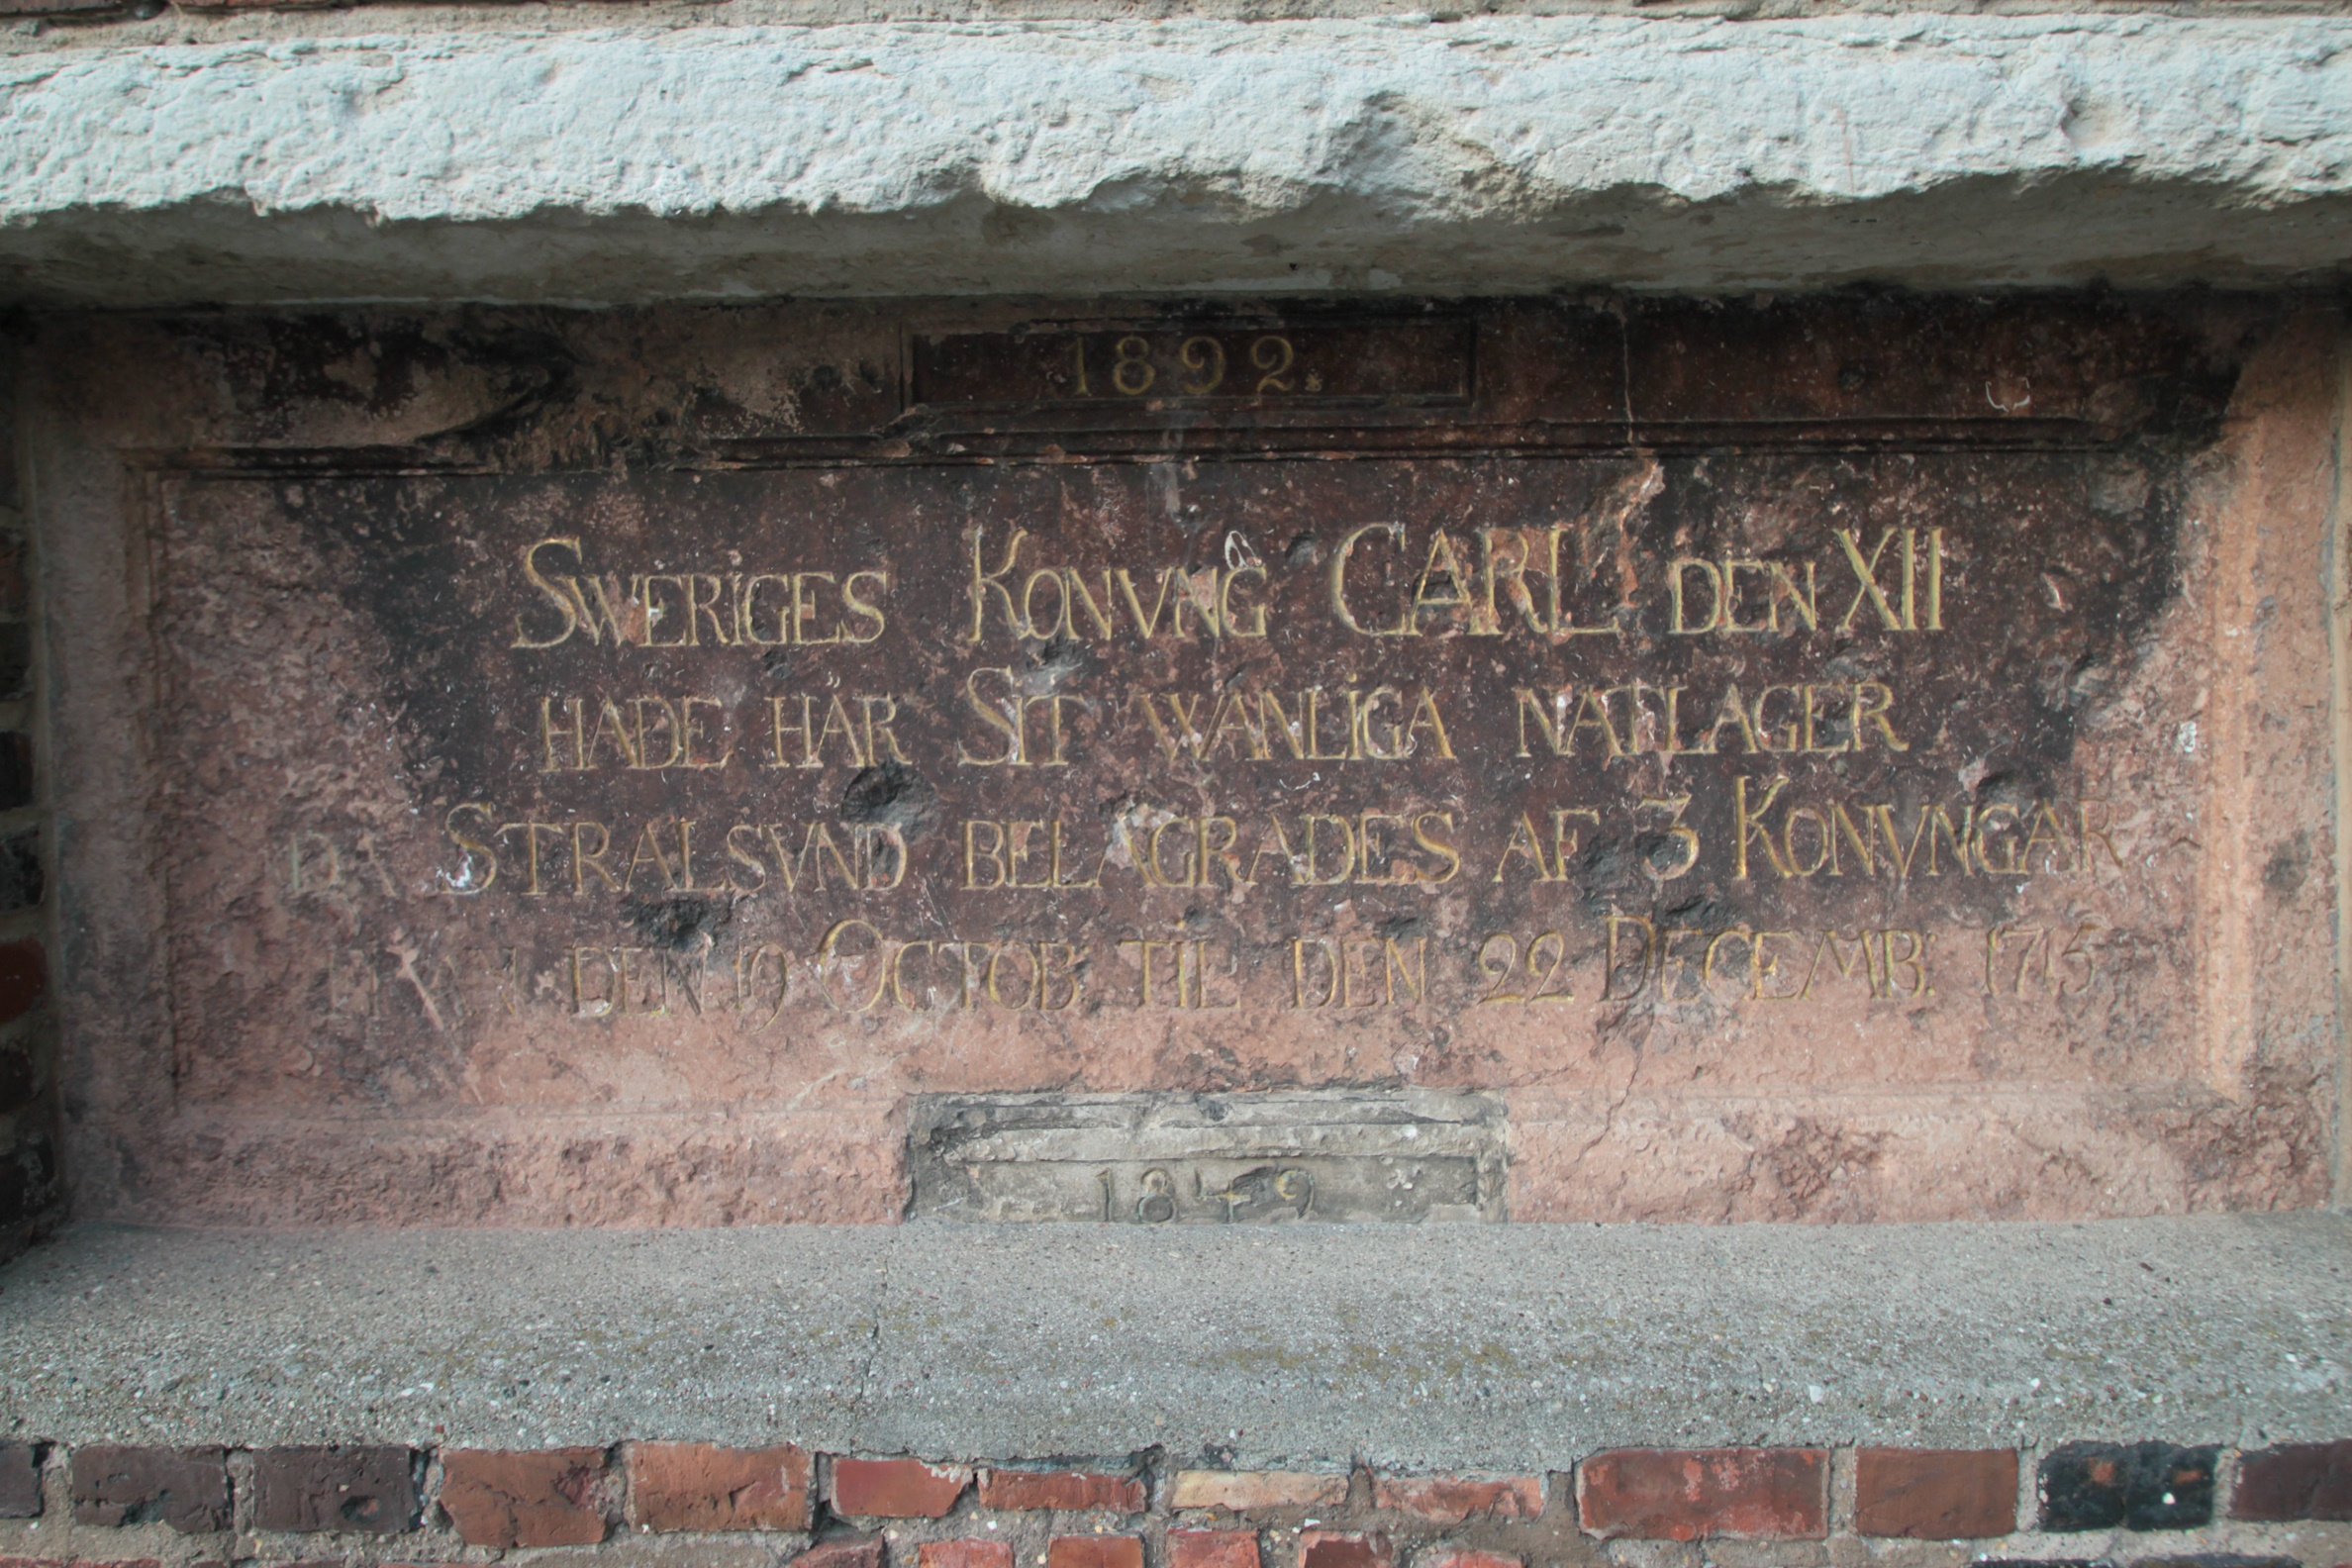 1892.
SWERIGES KONVNG CARL DEN XII
HADE HÄR SIT WANLIGA NATLAGER
DA STRALSVND BELAGRADES AF 3 KONVNGAR
DEN 19 OCTOB TIL DEN 22 DECEMB. 1715
1849